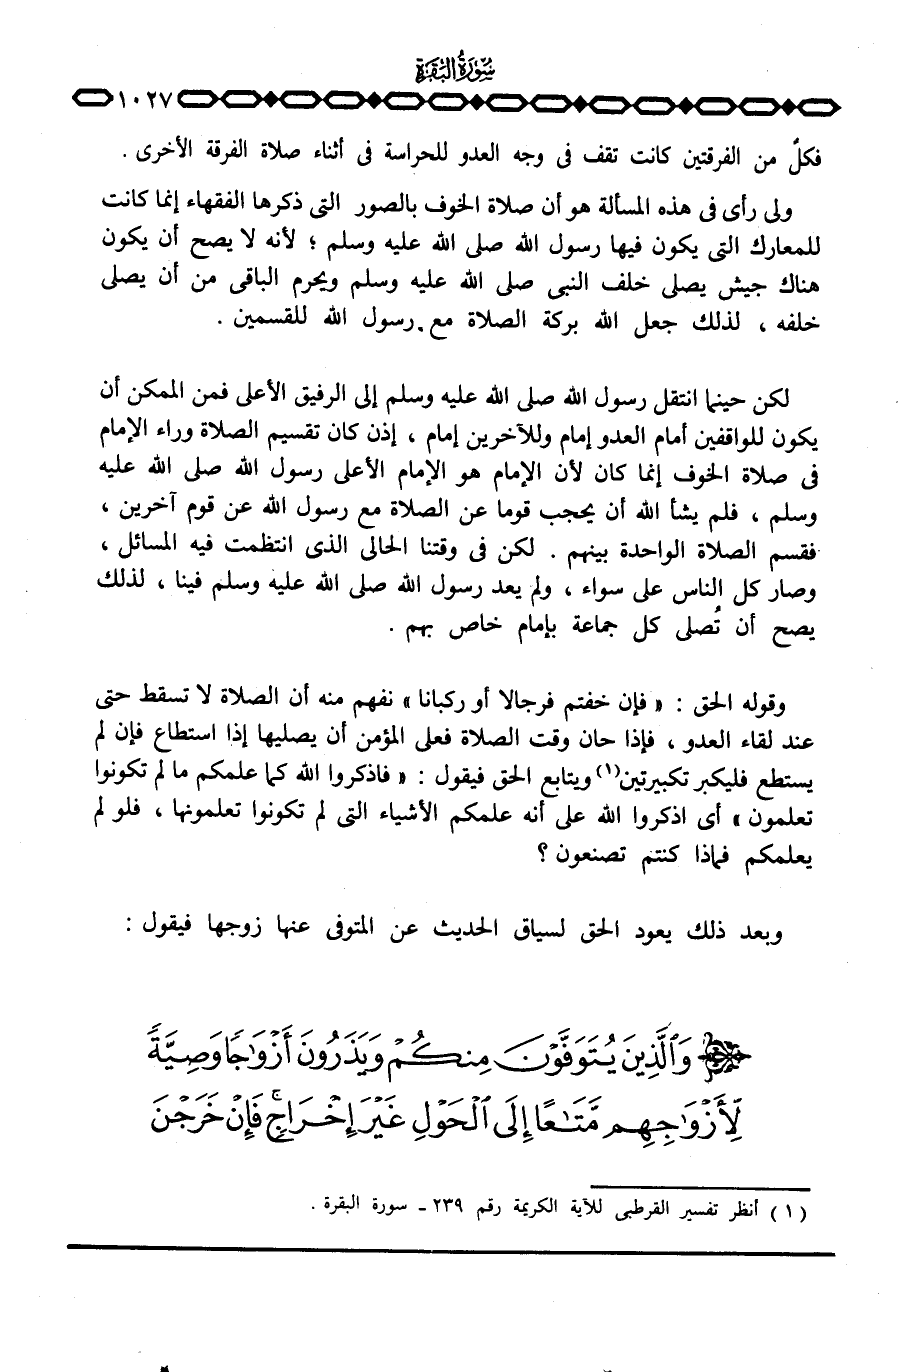 سُورَةُ البَقَرَة
١٠٢٧
فكلٌ من الفرقتين كانت تقف فى وجه العدو للحراسة فى أثناء صلاة الفرقة الأخرى .
ولى رأى فى هذه المسألة هو أن صلاة الخوف بالصور التى ذكرها الفقهاء إنما كانت
للمعارك التى يكون فيها رسول الله صلى الله عليه وسلم ؛ لأنه لا يصح أن يكون
هناك جيش يصلى خلف النبى صلى الله عليه وسلم ويحرم الباقى من أن يصلى
خلفه ، لذلك جعل الله بركة الصلاة مع رسول الله للقسمين .
لكن حينما انتقل رسول الله صلى الله عليه وسلم إلى الرفيق الأعلى فمن الممكن أن
يكون للواقفين أمام العدو إمام وللآخرين إمام ، إذن كان تقسيم الصلاة وراء الإمام
فى صلاة الخوف إنما كان لأن الإمام هو الإمام الأعلى رسول الله صلى الله عليه
وسلم ، فلم يشأ الله أن يحجب قوما عن الصلاة مع رسول الله عن قوم آخرين ،
فقسم الصلاة الواحدة بينهم . لكن فى وقتنا الحالى الذى انتظمت فيه المسائل ،
وصار كل الناس على سواء ، ولم يعد رسول الله صلى الله عليه وسلم فينا ، لذلك
يصح أن تُصلى كل جماعة بإمام خاص بهم .
وقوله الحق : « فإن خفتم فرجالا أو ركبانا » نفهم منه أن الصلاة لا تسقط حتى
عند لقاء العدو ، فإذا حان وقت الصلاة فعلى المؤمن أن يصليها إذا استطاع فإن لم
يستطع فليكبر تكبيرتين(١) ويتابع الحق فيقول : « فاذكروا الله كما علمكم ما لم تكونوا
تعلمون » أى اذكروا الله على أنه علمكم الأشياء التى لم تكونوا تعلمونها ، فلو لم
يعلمكم فماذا كنتم تصنعون ؟
وبعد ذلك يعود الحق لسياق الحديث عن المتوفى عنها زوجها فيقول :
وَٱلَّذِينَ يُتَوَفَّوْنَ مِنكُمْ وَيَذَرُونَ أَزْوَٰجًا وَصِيَّةً
لِّأَزْوَٰجِهِم مَّتَٰعًا إِلَى ٱلْحَوْلِ غَيْرَ إِخْرَاجٍ ۚ فَإِنْ خَرَجْنَ
( ١ ) أنظر تفسير القرطبى للآية الكريمة رقم ٢٣٩ - سورة البقرة .